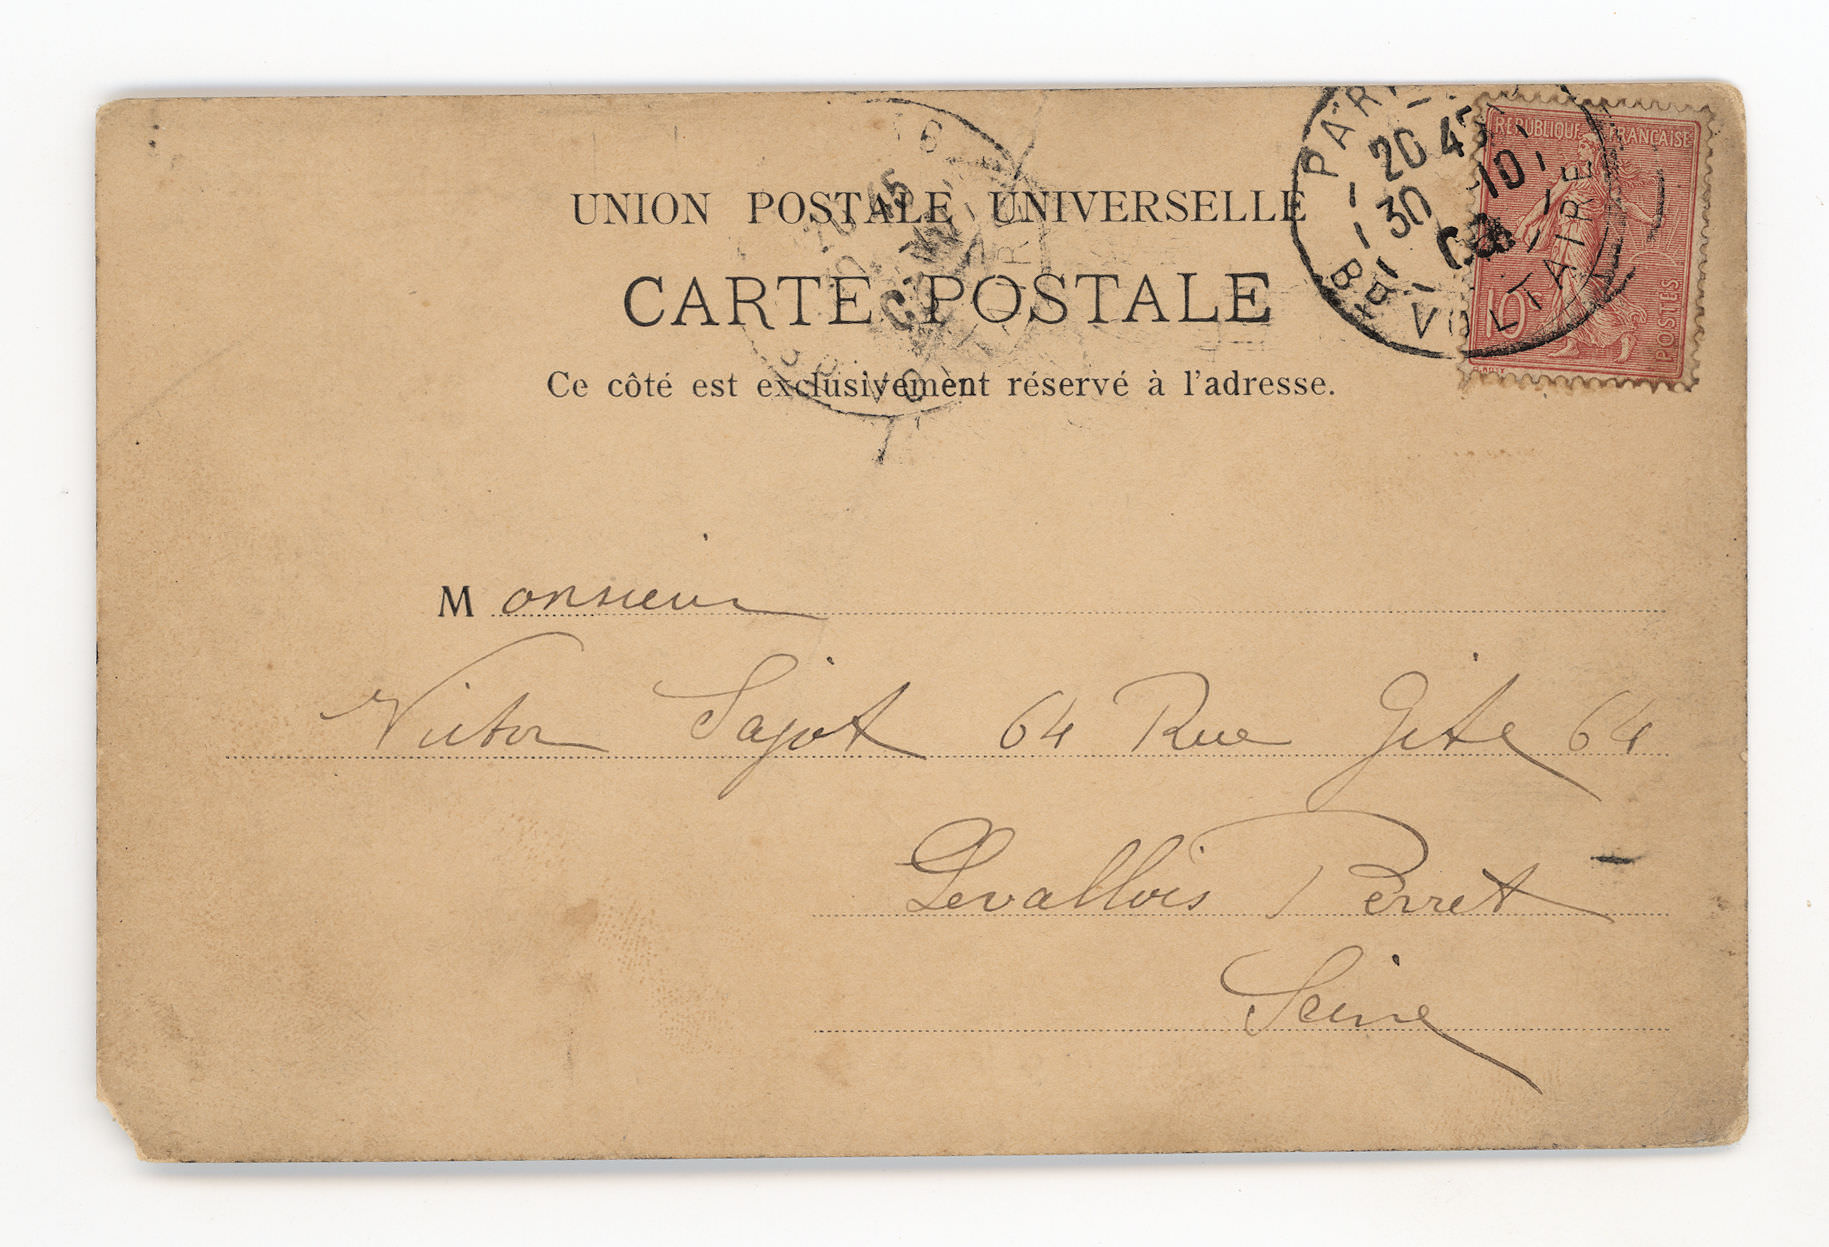 UNION POSTALE UNIVERSELLE
CARTE POSTALE
Ce côté est exclusivement réservé à l'adresse.
PARIS
20 45
30 -10
BD VOLTAIRE
REPUBLIQUE FRANÇAISE
10c
POSTES
20 45
Monsieur
Victor Sajot 64 Rue Gide 64
Levallois Perret
Seine